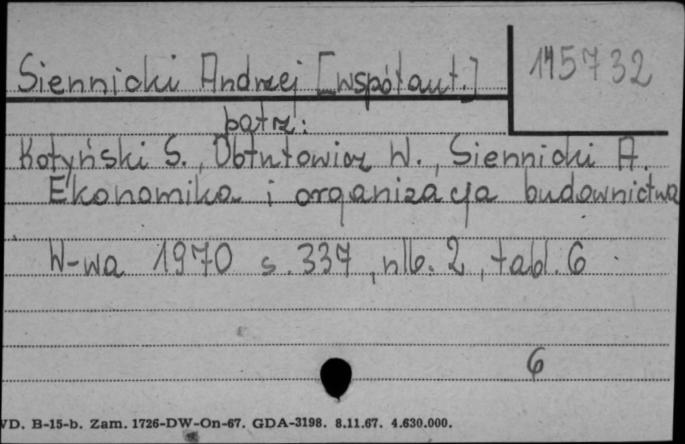 Siennicki Andrzej [współaut.]
145732
patrz:
Kotyński S., Obtułowicz W., Siennicki A.
Ekonomika i organizacja budownictwa
W-wa 1970 s. 337, nlb. 2, tabl. 6
6
VD. B-15-b. Zam. 1726-DW-On-67. GDA-3198. 8.11.67. 4.630.000.